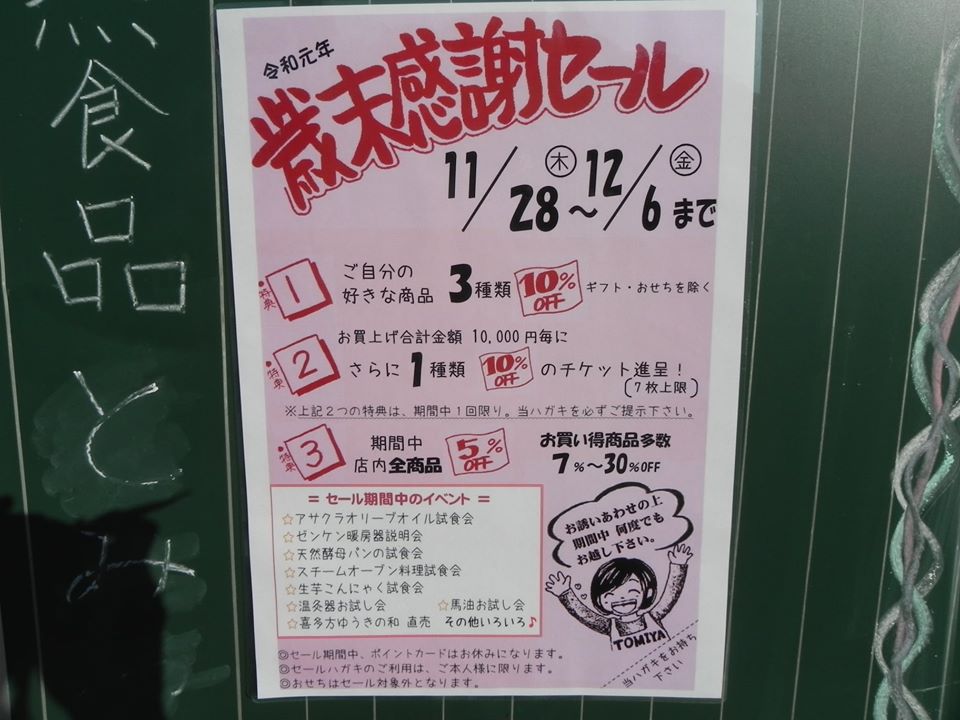 食品とみ
令和元年
歳末感謝セール
11/28(木)～12/6(金)まで
特典 1 ご自分の
好きな商品 3種類 10%OFF ギフト・おせちを除く
お買上げ合計金額 10,000円毎に
特典 2 さらに1種類 10%OFF のチケット進呈！
(7枚上限)
※上記2つの特典は、期間中1回限り。当ハガキを必ずご提示下さい。
特典 3 期間中
店内全商品 5%OFF
お買い得商品多数
7%～30%OFF
＝ セール期間中のイベント ＝
☆アサクラオリーブオイル試食会
☆ゼンケン暖房器説明会
☆天然酵母パンの試食会
☆スチームオーブン料理試食会
☆生芋こんにゃく試食会
☆温灸器お試し会 ☆馬油お試し会
☆喜多方ゆうきの和 直売 その他いろいろ♪
お誘いあわせの上
期間中 何度でも
お越し下さい。
TOMIYA
当ハガキをお持ち
下さい
◎セール期間中、ポイントカードはお休みになります。
◎セールハガキのご利用は、ご本人様に限ります。
◎おせちはセール対象外となります。